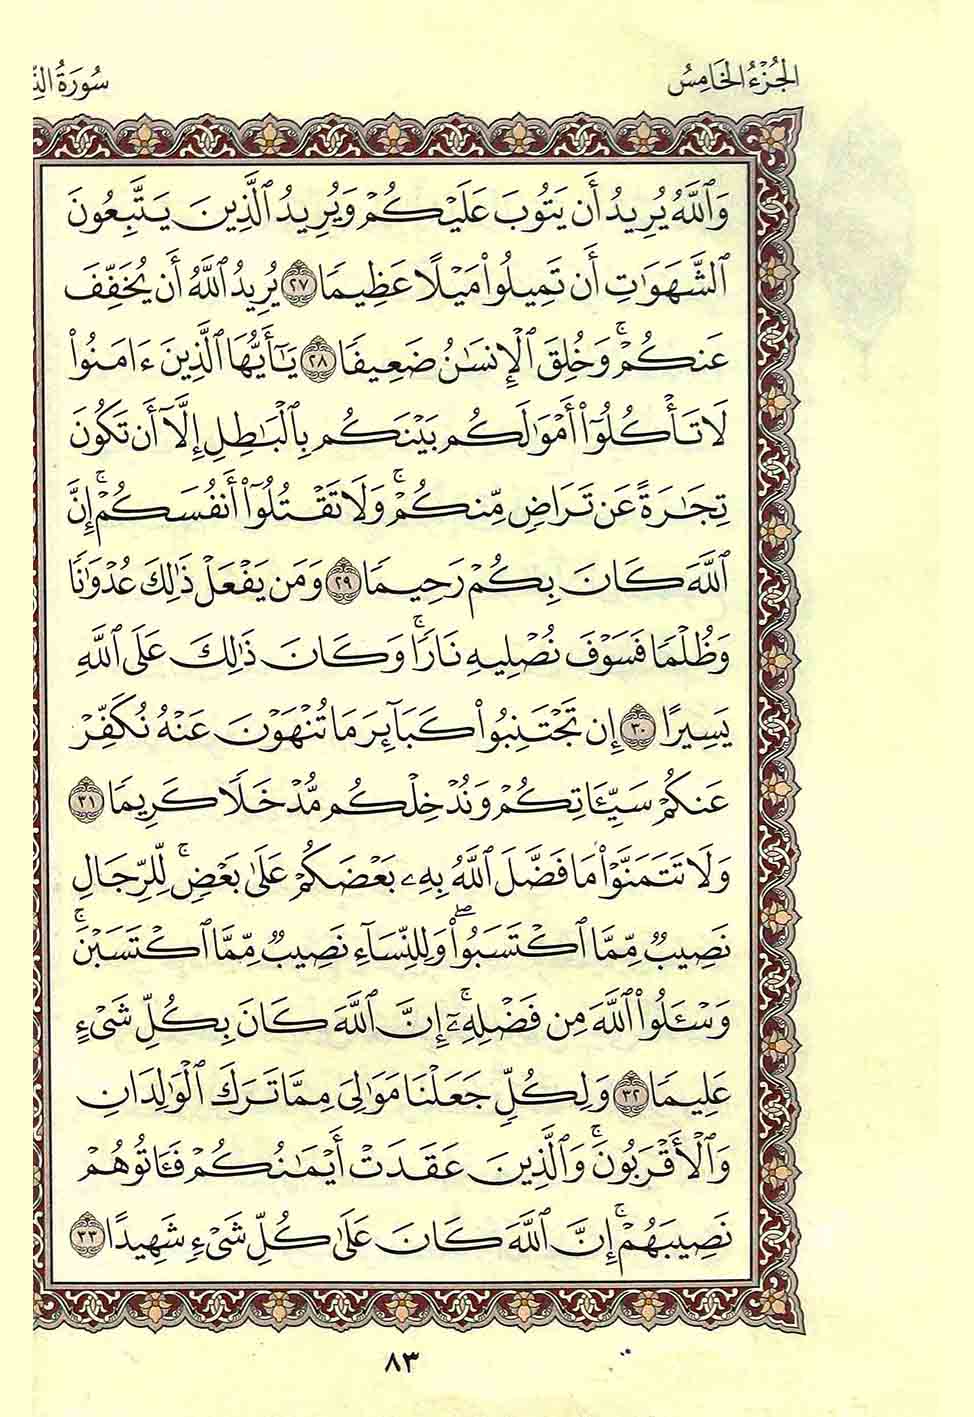 الجُزْءُ الخَامِسُ
سُورَةُ
وَٱللَّهُ يُرِيدُ أَن يَتُوبَ عَلَيْكُمْ وَيُرِيدُ ٱلَّذِينَ يَتَّبِعُونَ
ٱلشَّهَوَٰتِ أَن تَمِيلُوا۟ مَيْلًا عَظِيمًا ٢٧ يُرِيدُ ٱللَّهُ أَن يُخَفِّفَ
عَنكُمْ ۚ وَخُلِقَ ٱلْإِنسَـٰنُ ضَعِيفًا ٢٨ يَـٰٓأَيُّهَا ٱلَّذِينَ ءَامَنُوا۟
لَا تَأْكُلُوٓا۟ أَمْوَٰلَكُم بَيْنَكُم بِٱلْبَـٰطِلِ إِلَّآ أَن تَكُونَ
تِجَـٰرَةً عَن تَرَاضٍ مِّنكُمْ ۚ وَلَا تَقْتُلُوٓا۟ أَنفُسَكُمْ ۚ إِنَّ
ٱللَّهَ كَانَ بِكُمْ رَحِيمًا ٢٩ وَمَن يَفْعَلْ ذَٰلِكَ عُدْوَٰنًا
وَظُلْمًا فَسَوْفَ نُصْلِيهِ نَارًا ۚ وَكَانَ ذَٰلِكَ عَلَى ٱللَّهِ
يَسِيرًا ٣٠ إِن تَجْتَنِبُوا۟ كَبَآئِرَ مَا تُنْهَوْنَ عَنْهُ نُكَفِّرْ
عَنكُمْ سَيِّـَٔاتِكُمْ وَنُدْخِلْكُم مُّدْخَلًا كَرِيمًا ٣١
وَلَا تَتَمَنَّوْا۟ مَا فَضَّلَ ٱللَّهُ بِهِۦ بَعْضَكُمْ عَلَىٰ بَعْضٍ ۚ لِّلرِّجَالِ
نَصِيبٌ مِّمَّا ٱكْتَسَبُوا۟ ۖ وَلِلنِّسَآءِ نَصِيبٌ مِّمَّا ٱكْتَسَبْنَ ۚ
وَسْـَٔلُوا۟ ٱللَّهَ مِن فَضْلِهِۦٓ ۚ إِنَّ ٱللَّهَ كَانَ بِكُلِّ شَىْءٍ
عَلِيمًا ٣٢ وَلِكُلٍّ جَعَلْنَا مَوَٰلِىَ مِمَّا تَرَكَ ٱلْوَٰلِدَانِ
وَٱلْأَقْرَبُونَ ۚ وَٱلَّذِينَ عَقَدَتْ أَيْمَـٰنُكُمْ فَـَٔاتُوهُمْ
نَصِيبَهُمْ ۚ إِنَّ ٱللَّهَ كَانَ عَلَىٰ كُلِّ شَىْءٍ شَهِيدًا ٣٣
٨٣